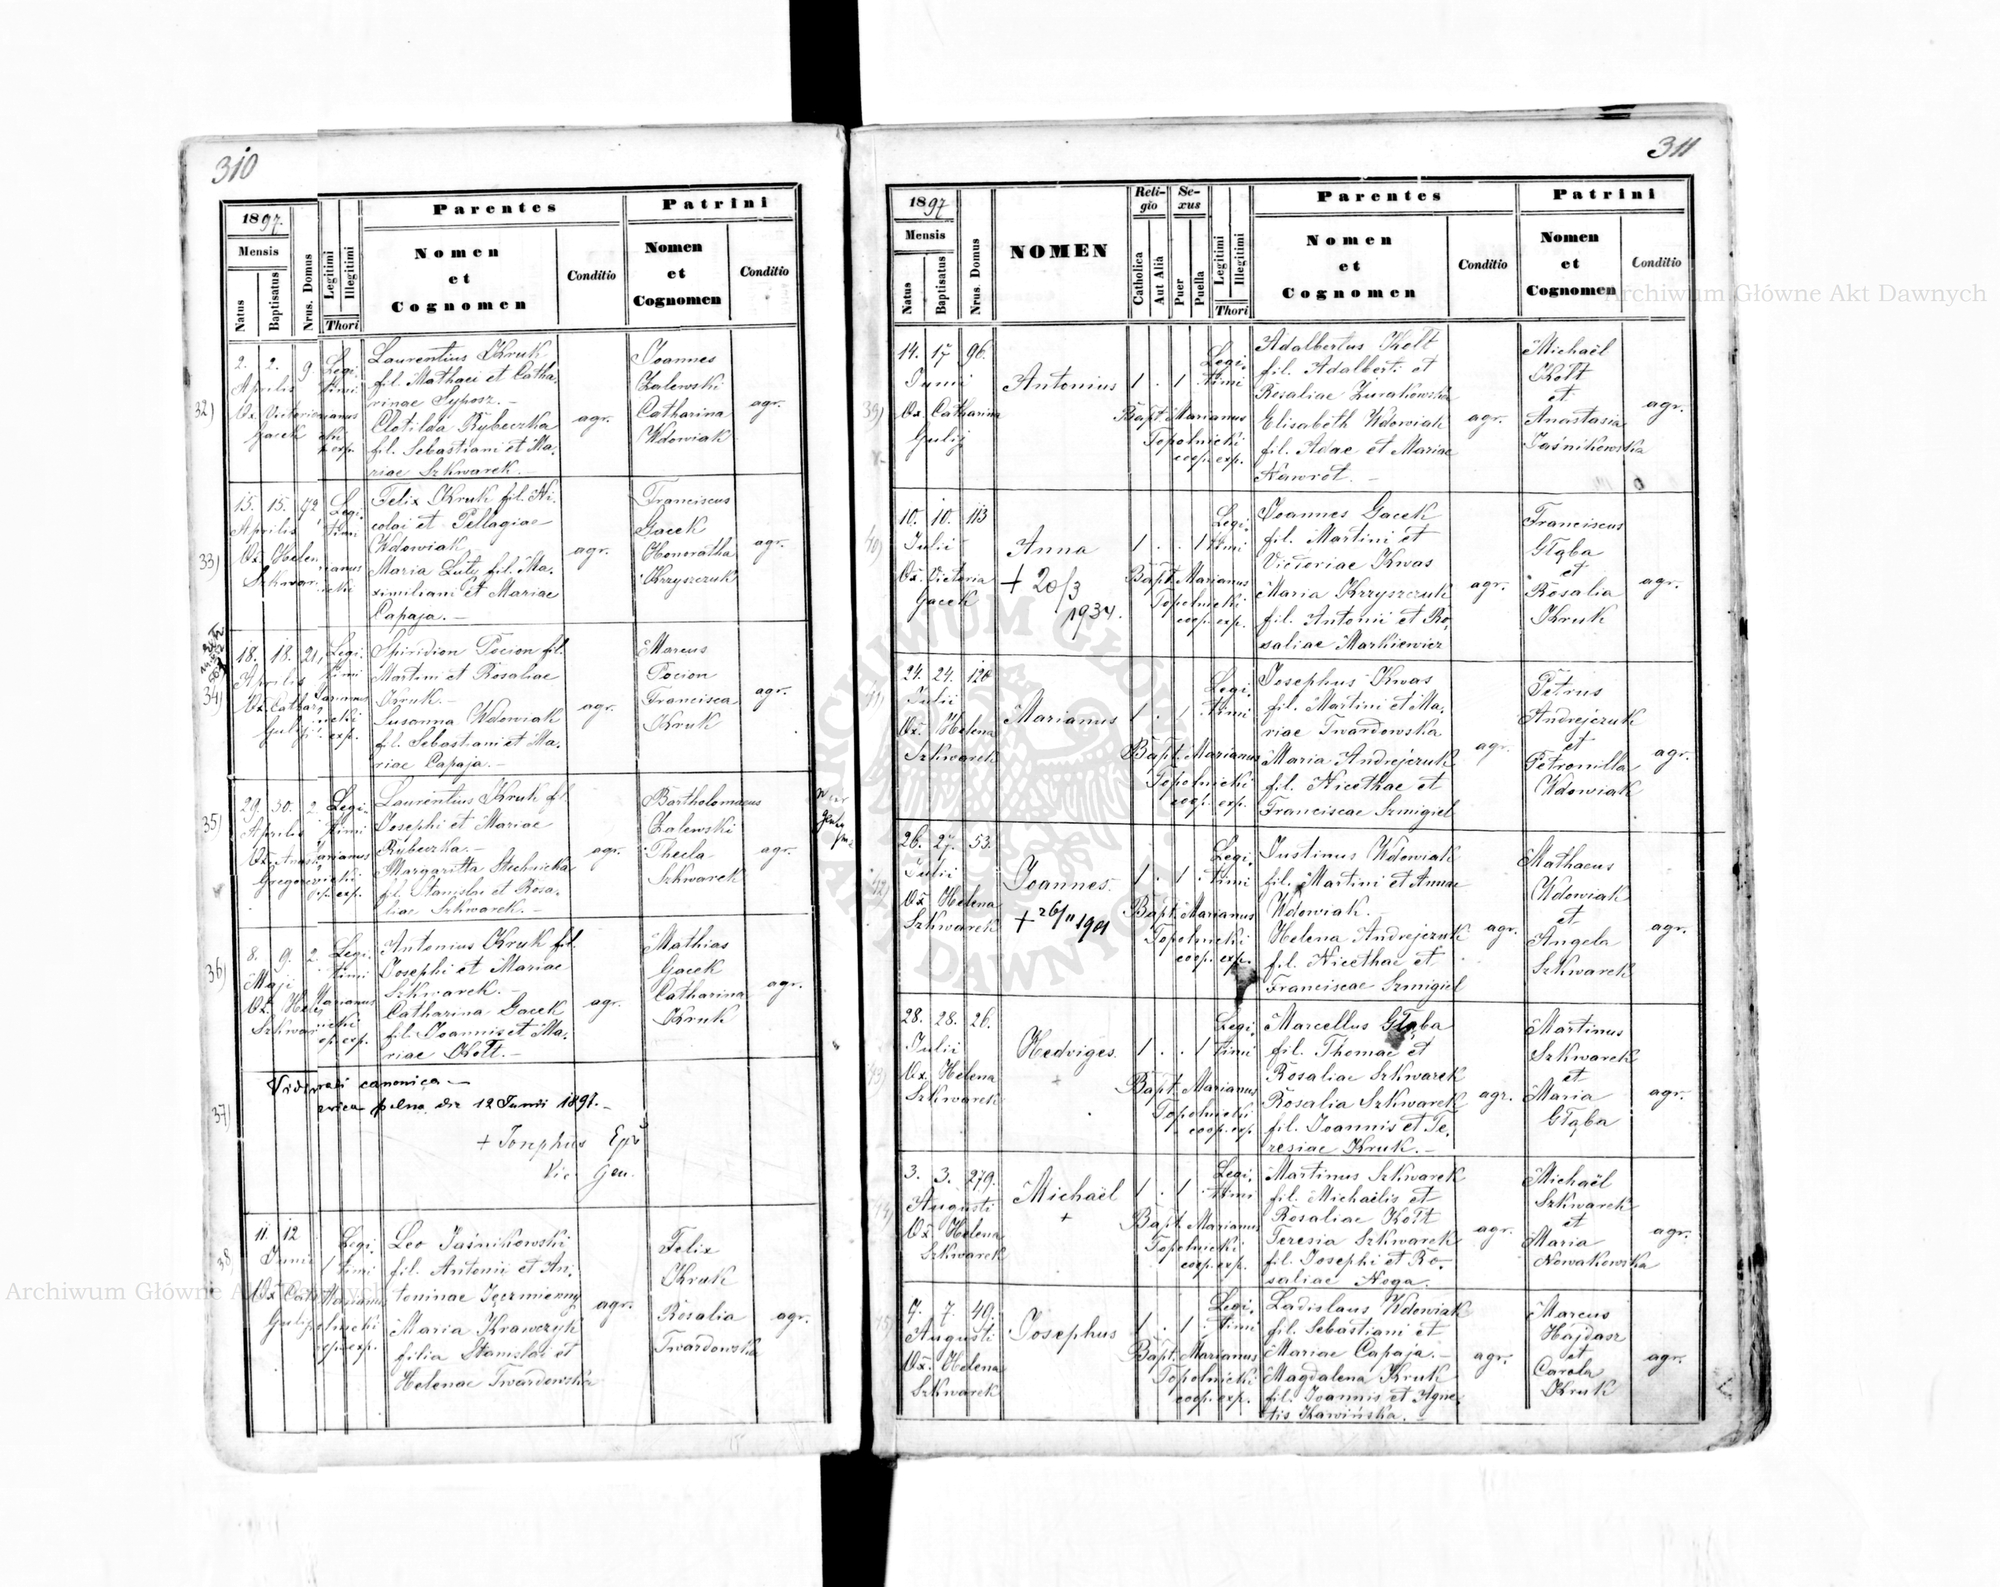 310
1897.
Mensis
Natus
Baptisatus
Nrus. Domus
Legitimi
Illegitimi
Thori
Parentes
Nomen
et
Cognomen
Conditio
Patrini
Nomen
et
Cognomen
Conditio
32)
2. 2. 9.
Aprilis
Ox. Victoria
Gacek
Legi-
timi
Laurentius Kruk
fil. Mathaei et Catha-
rinae Syposz. -
Clotilda Rybeczka
fil. Sebastiani et Ma-
riae Szkwarek. -
agr.
Joannes
Zalewski
Catharina
Wdowiak
agr.
33)
15. 15. 72
Aprilis
Ox. Helen
Szkwar.
Legi-
timi
Felix Kruk fil. Ni-
colai et Pellagiae
Wdowiak
Maria Luty fil. Ma-
ximiliani et Mariae
Capaja. -
agr.
Franciscus
Gacek
Honoratha
Krzyszczuk
agr.
34)
18. 18. 21,
Aprilis
Ox. Cathar
Gulij
Legi-
timi
exp.
Spiridion Pocion fil.
Martini et Rosaliae
Kruk. -
Susanna Wdowiak
fil. Sebastiani et Ma-
riae Capaja. -
agr.
Marcus
Pocion
Francisca
Kruk
agr.
35)
29. 30. 2
Aprilis
Ox. Anas
Gregore
Legi-
timi
Laurentius Kruk fil.
Josephi et Mariae
Rybeczka. -
Margaritta Stechnicka
fil. Stanislai et Rosa-
liae Szkwarek. -
agr.
Bartholomaeus
Zalewski
Thecla
Szkwarek
agr.
36)
8. 9. 2
Maji
Ox. Hele
Szkwar
Legi-
timi
Antonius Kruk fil.
Josephi et Mariae
Szkwarek. -
Catharina Gacek
fil. Joannis et Ma-
riae Kołt. -
agr.
Mathias
Gacek
Catharina
Kruk
agr.
37)
canonica -
die 12 Junii 1897. -
+ Josephus Epũs
Vic. Gen.
38)
11. 12
Junii
Ox Cath
Gulij
Legi-
timi
Leo Jaśnikowski
fil. Antonii et An-
toninae Jęczmienny
Maria Krawczyk
filia Stanislai et
Helenae Twardowska
agr.
Felix
Kruk
Rosalia
Twardowska
agr.
311
1897
Mensis
Natus
Baptisatus
Nrus. Domus
NOMEN
Reli-
gio
Catholica
Aut Alia
Se-
xus
Puer
Puella
Legitimi
Illegitimi
Thori
Parentes
Nomen
et
Cognomen
Conditio
Patrini
Nomen
et
Cognomen
Conditio
39)
14. 17 96.
Junii
Ox. Catharina
Gulij
Antonius
1 . 1 .
Legi-
timi
Bapt. Marianus
Topolnicki
coop. exp.
Adalbertus Kołt
fil. Adalberti et
Rosaliae Żurakowska
Elisabeth Wdowiak
fil. Adae et Mariae
Nawrot. -
agr.
Michaël
Kołt
et
Anastasia
Jaśnikowska
agr.
40)
10. 10. 113
Julii
Ox. Victoria
Gacek
Anna
+ 20/3
1934.
1 . . 1
Legi-
timi
Bapt. Marianus
Topolnicki
coop. exp.
Joannes Gacek
fil. Martini et
Victoriae Kwas
Maria Krzyszczuk
fil. Antonii et Ro-
saliae Markiewicz
agr.
Franciscus
Głąba
et
Rosalia
Kruk
agr.
41)
24. 24. 120
Julii
Ox. Helena
Szkwarek
Marianus
1 . 1 .
Legi-
timi
Bapt. Marianus
Topolnicki
coop. exp.
Josephus Kwas
fil. Martini et Ma-
riae Twardowska
Maria Andrejczuk
fil. Nicethae et
Franciscae Szmigiel
agr.
Petrus
Andrejczuk
et
Petronilla
Wdowiak
agr.
42)
26. 27. 53.
Julii
Ox Helena
Szkwarek
Joannes.
+ 26/11 1901
1 . 1 .
Legi-
timi
Bapt. Marianus
Topolnicki
coop. exp.
Justinus Wdowiak
fil. Martini et Annae
Wdowiak. -
Helena Andrejczuk
fil. Nicethae et
Franciscae Szmigiel
agr.
Mathaeus
Wdowiak
et
Angela
Szkwarek
agr.
43)
28. 28. 26.
Julii
Ox. Helena
Szkwarek
Hedviges.
+
1 . . 1
Legi-
timi
Bapt. Marianus
Topolnicki
coop. exp.
Marcellus Głąba
fil. Thomae et
Rosaliae Szkwarek
Rosalia Szkwarek
fil. Joannis et Te-
resiae Kruk. -
agr.
Martinus
Szkwarek
et
Maria
Głąba
agr.
44)
3. 3. 279.
Augusti
Ox. Helena
Szkwarek
Michaël
+
1 . 1 .
Legi-
timi
Bapt. Marianus
Topolnicki
coop. exp.
Martinus Szkwarek
fil. Michaëlis et
Rosaliae Kołt
Teresia Szkwarek
fil. Josephi et Ro-
saliae Noga.
agr.
Michaël
Szkwarek
et
Maria
Nowakowska
agr.
45)
7. 7. 49.
Augusti
Ox. Helena
Szkwarek
Josephus
1 . 1 .
Legi-
timi
Bapt. Marianus
Topolnicki
coop. exp.
Ladislaus Wdowiak
fil. Sebastiani et
Mariae Capaja. -
Magdalena Kruk
fil. Joannis et Agne-
tis Kawińska. -
agr.
Marcus
Hajdasz
et
Carola
Kruk
agr.
Archiwum Główne Akt Dawnych
Archiwum Główne Akt Dawnych
ARCHIWUM GŁÓWNE AKT DAWNYCH